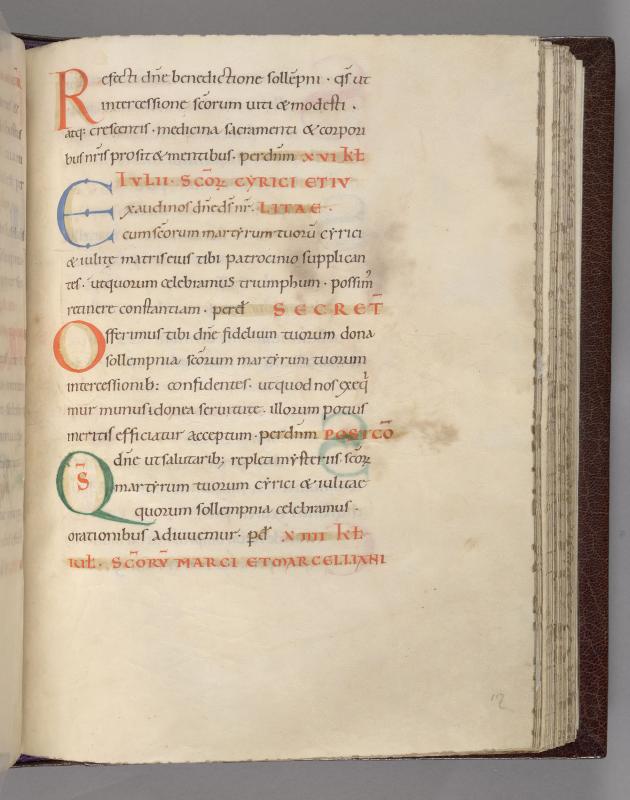 Refecti dn̄e benedictione sollēpni · qs̄ ut
intercessione sc̄orum uiti & modesti ·
atq; crescentis · medicina sacramenti & corpori
bus nr̄is prosit & mentibus · per dn̄m XVI kł
IVLII · SC̄OꝜ CYRICI ET IV
Exaudi nos dn̄e ds̄ nr̄ · LITAE ·
& cum sc̄orum martyrum tuorū cyrici
& iulitę matris eius tibi patrocinio supplican
tes · ut quorum celebramus triumphum · possim᷒
retinere constantiam · per
SECRET̄
Offerimus tibi dn̄e fidelium tuorum dona
sollempnia sc̄orum martyrum tuorum
intercessionib: confidentes · ut quod nos exeq̇
mur munus idonea seruitute · illorum potius
meritis efficiatur acceptum · per dn̄m POSTCŌ
QS̄ dn̄e ut salutarib; repleti mysteriis sc̄oꝝ
martyrum tuorum cyrici & iulitae
quorum sollempnia celebramus ·
orationibus adiuuemur · X IIII kł
IUł · SC̄ORV MARCI ET MARCELLIANI
12